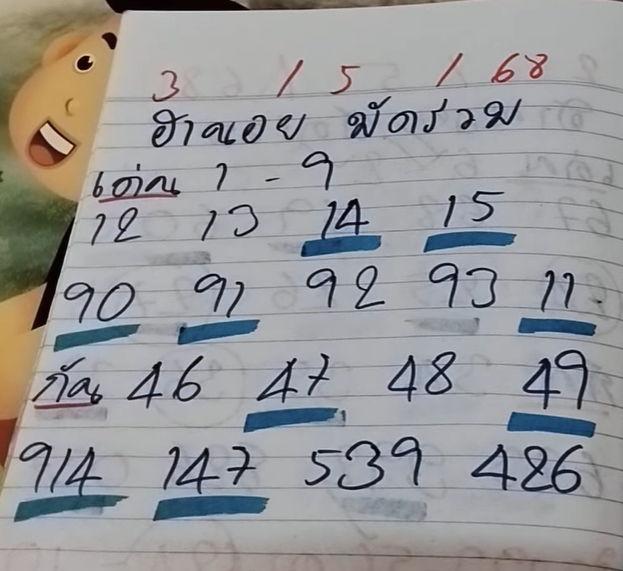 3 / 5 / 68
ฮานอย มัดรวม
เด่น 1 - 9
12 13 14 15
90 91 92 93 11
กัน 46 47 48 49
914 147 539 426